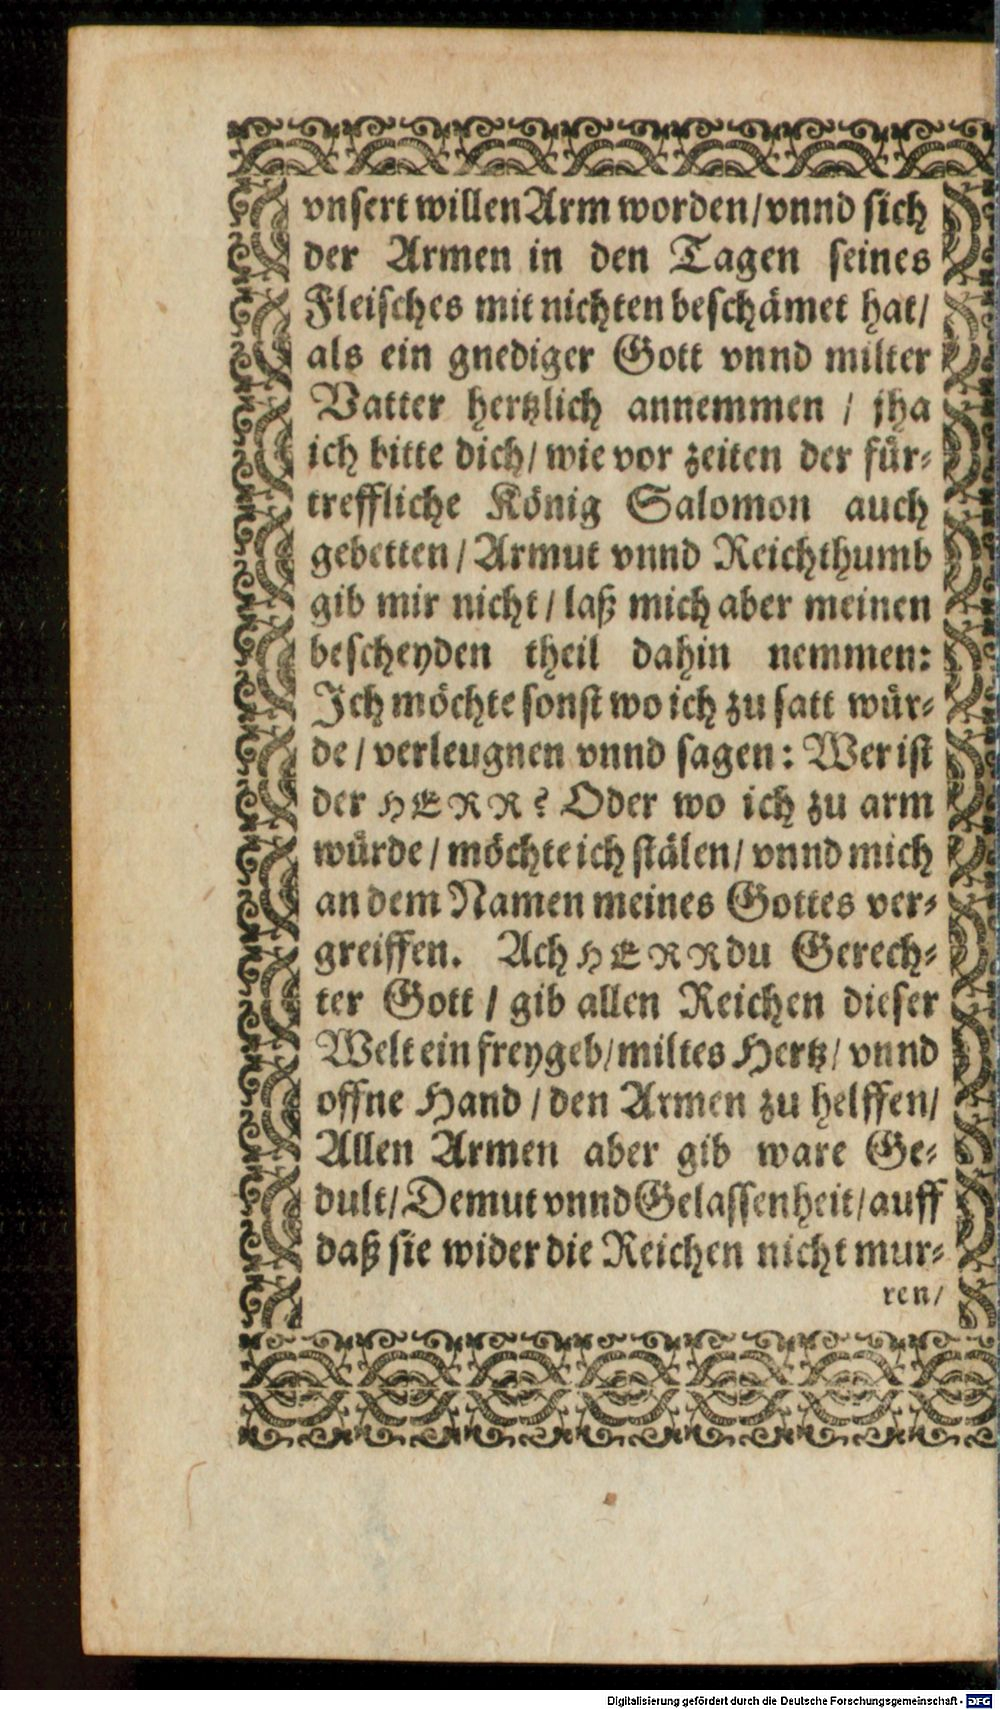 vnsert willen Arm worden/vnnd sich
der Armen in den Tagen seines
Fleisches mit nichten beschämet hat/
als ein gnediger Gott vnnd milter
Vatter hertzlich annemmen / jha
ich bitte dich/ wie vor zeiten der für-
treffliche König Salomon auch
gebetten / Armut vnnd Reichthumb
gib mir nicht / laß mich aber meinen
bescheyden theil dahin nemmen:
Ich möchte sonst wo ich zu satt wür-
de / verleugnen vnnd sagen: Wer ist
der HERR? Oder wo ich zu arm
würde / möchte ich stälen/ vnnd mich
an dem Namen meines Gottes ver-
greiffen. Ach HERR du Gerech-
ter Gott / gib allen Reichen dieser
Welt ein freygeb/miltes Hertz/ vnnd
offne Hand / den Armen zu helffen/
Allen Armen aber gib ware Ge-
dult/Demut vnnd Gelassenheit/auff
daß sie wider die Reichen nicht mur-
ren/
Digitalisierung gefördert durch die Deutsche Forschungsgemeinschaft - DFG